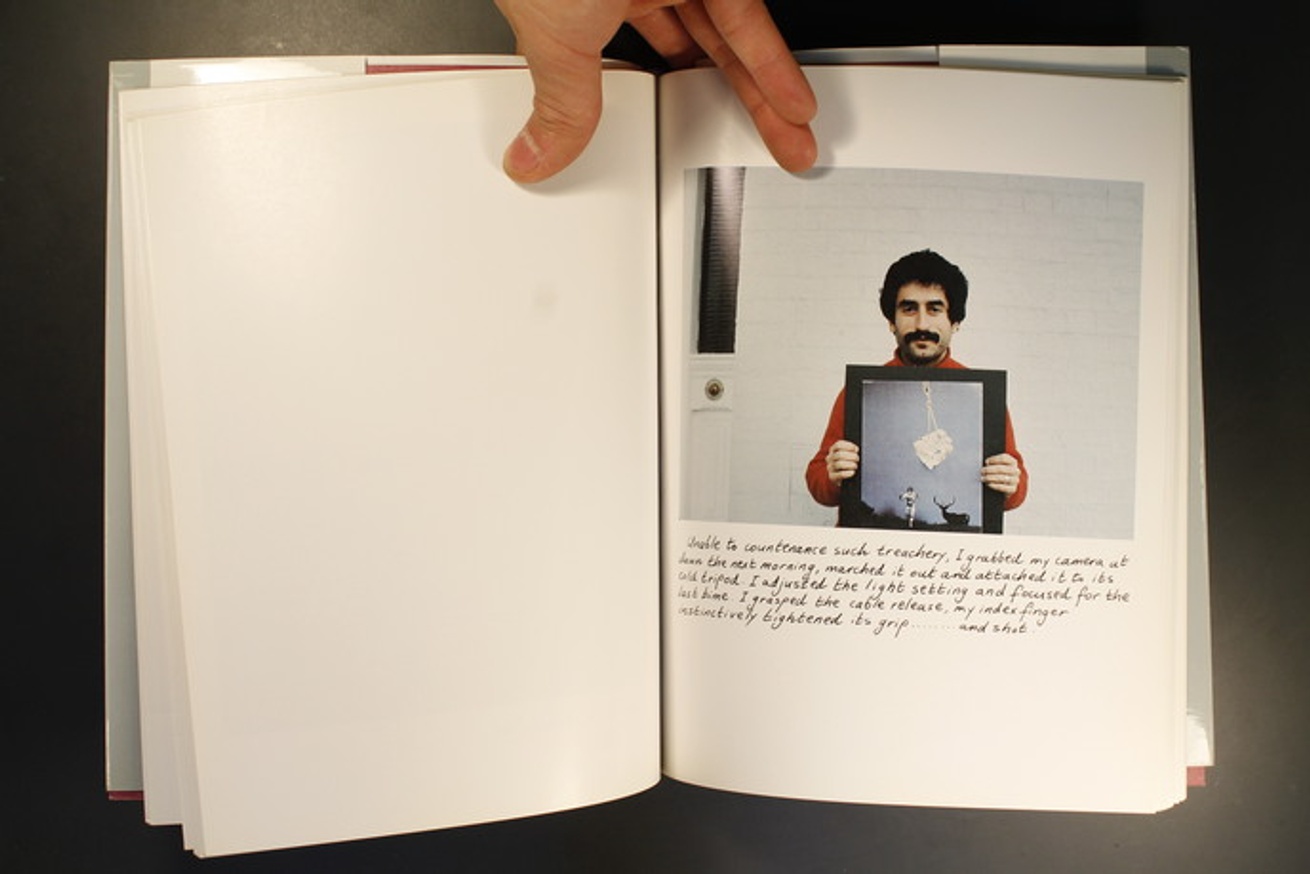 Unable to countenance such treachery, I grabbed my camera at
dawn the next morning, marched it out and attached it to its
cold tripod. I adjusted the light setting and focused for the
last time. I grasped the cable release, my index finger
instinctively tightened its grip........and shot.